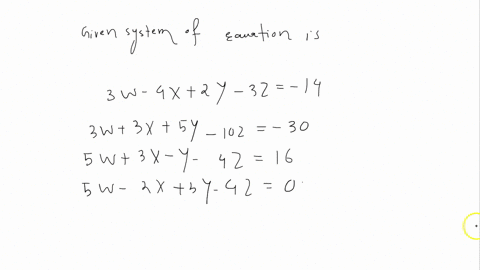 Given system of equation is
3W - 4X + 2Y - 3Z = -14
3W + 3X + 5Y - 10Z = -30
5W + 3X - Y - 4Z = 16
5W - 2X + 5Y - 4Z = 0